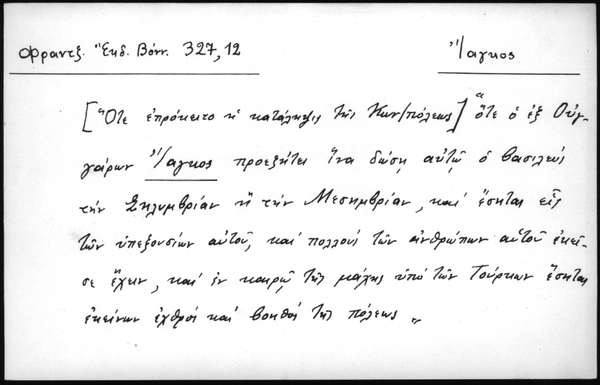 Φραντζ. Ἔκδ. Βόνν. 327,12
Ἴαγκος
[Ὅτε ἐπρόκειτο ἡ κατάληψις τῆς Κων/πόλεως] "ὅτε ὁ ἐξ Οὐγ-
γάρων Ἴαγκος προεζήτει ἵνα δώσῃ αὐτῷ ὁ βασιλεὺς
τὴν Σηλυμβρίαν ἢ τὴν Μεσημβρίαν, καὶ ἔσηται εἷς
τῶν ὑπεξουσίων αὐτοῦ, καὶ πολλοὺς τῶν ἀνθρώπων αὐτοῦ ἐκεῖ-
σε ἔχειν, καὶ ἐν καιρῷ τῆς μάχης ὑπὸ τῶν Τούρκων ἔσηται
ἐκείνων ἐχθρὸς καὶ βοηθὸς τῆς πόλεως "